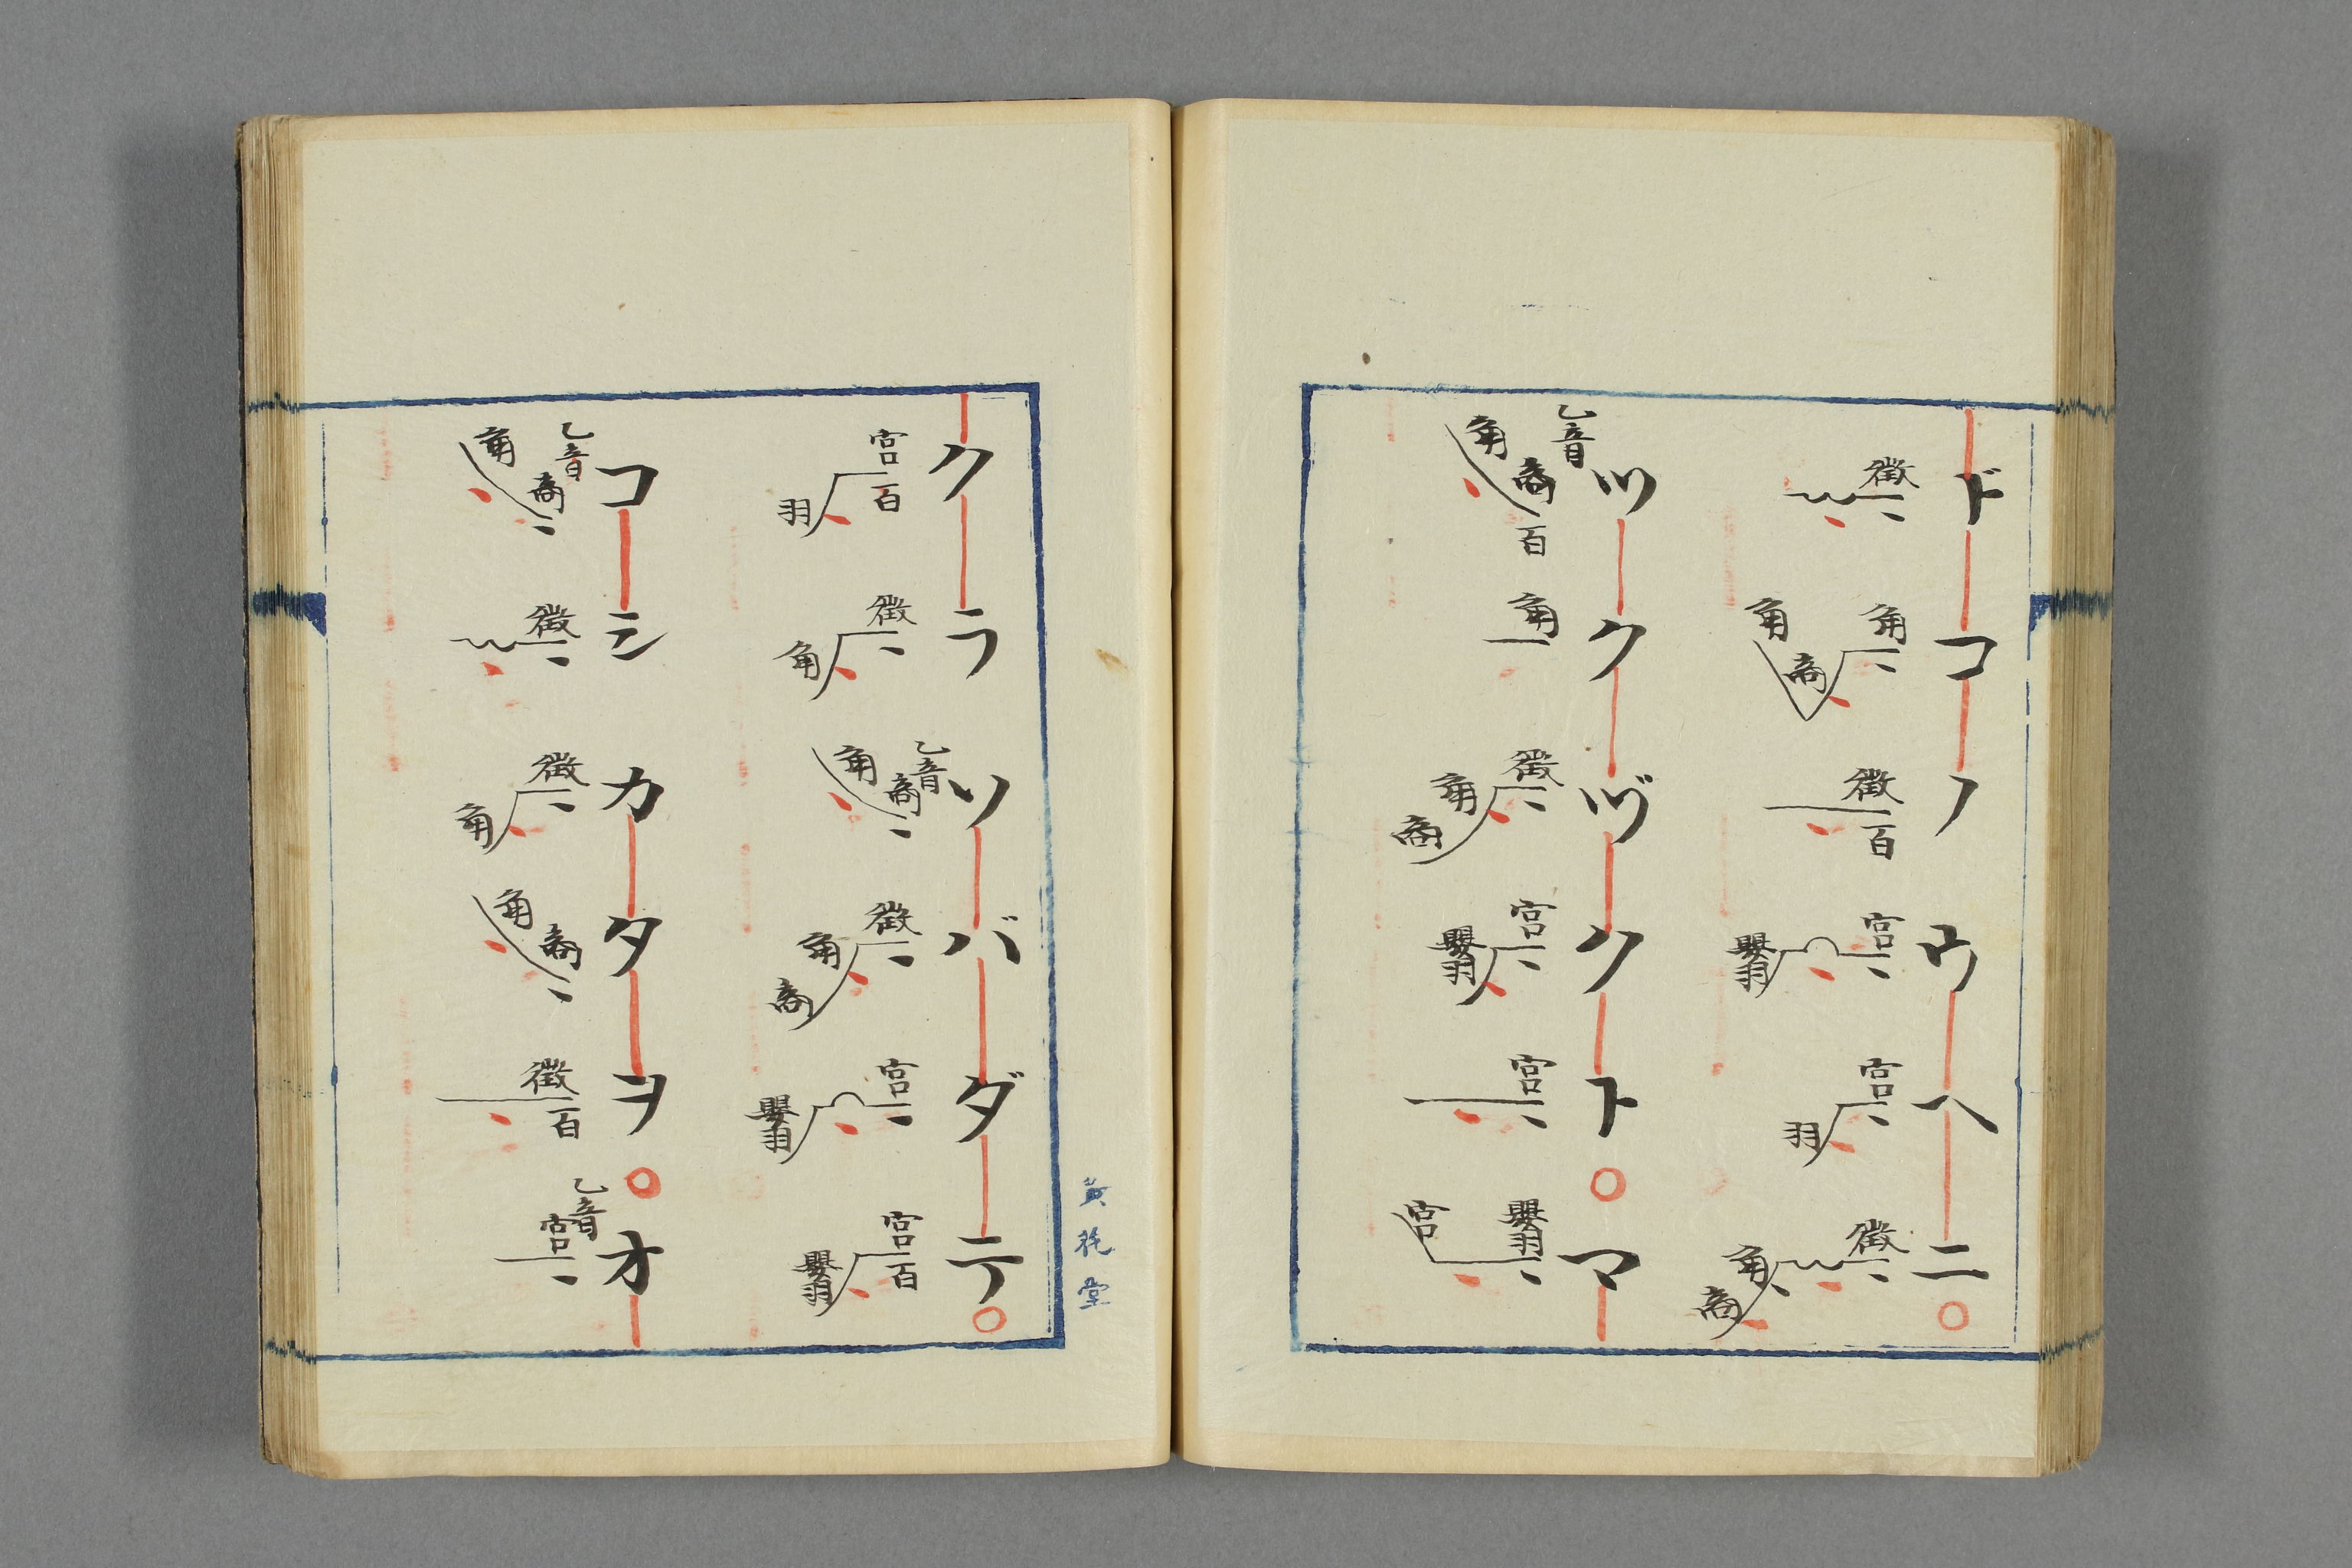 ドコノウヘニ○
徴 角商角 徴百 宮嬰羽 宮羽 徴角商
ツクヅクト○マ
乙音商角百 角 徴角商 宮嬰羽 宮 嬰羽宮
堂
クラソバダテ○
宮百羽 徴角 乙音商角 徴角商 宮嬰羽 宮百嬰羽
コシカタヲ○オ
乙音商角 徴 徴角 商角 徴百 乙音宮